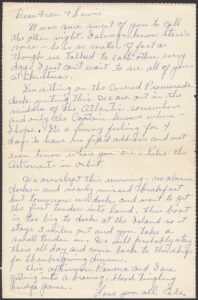 Dear Fran & Lewis
It was so sweet of you to call
the other night. I always know Stu's
voice - he's so matter of fact as
though we talked to each other every
day. I just can't wait to see all of you
at Christmas.
I'm sitting on the Grand Promenade
deck writing this. We are out in the
middle of the Atlantic somewhere
and only the Captain knows where -
I hope. It's a funny feeling for 4
days to have no fixed address and not
even know where you are - like the
astronauts in orbit.
We overslept this morning - no alarm
clocks - and nearly missed breakfast
but tomorrow will dock and want to get
the first tender into land. This boat
is too big to dock at the Island so
stays 3 miles out and you take a
small tender in. We will probably stay
there all day and come back to the ship
for Thanksgiving dinner.
This afternoon Ramona and I are
getting into a brainy blood thinking
Bridge game.
Love you all